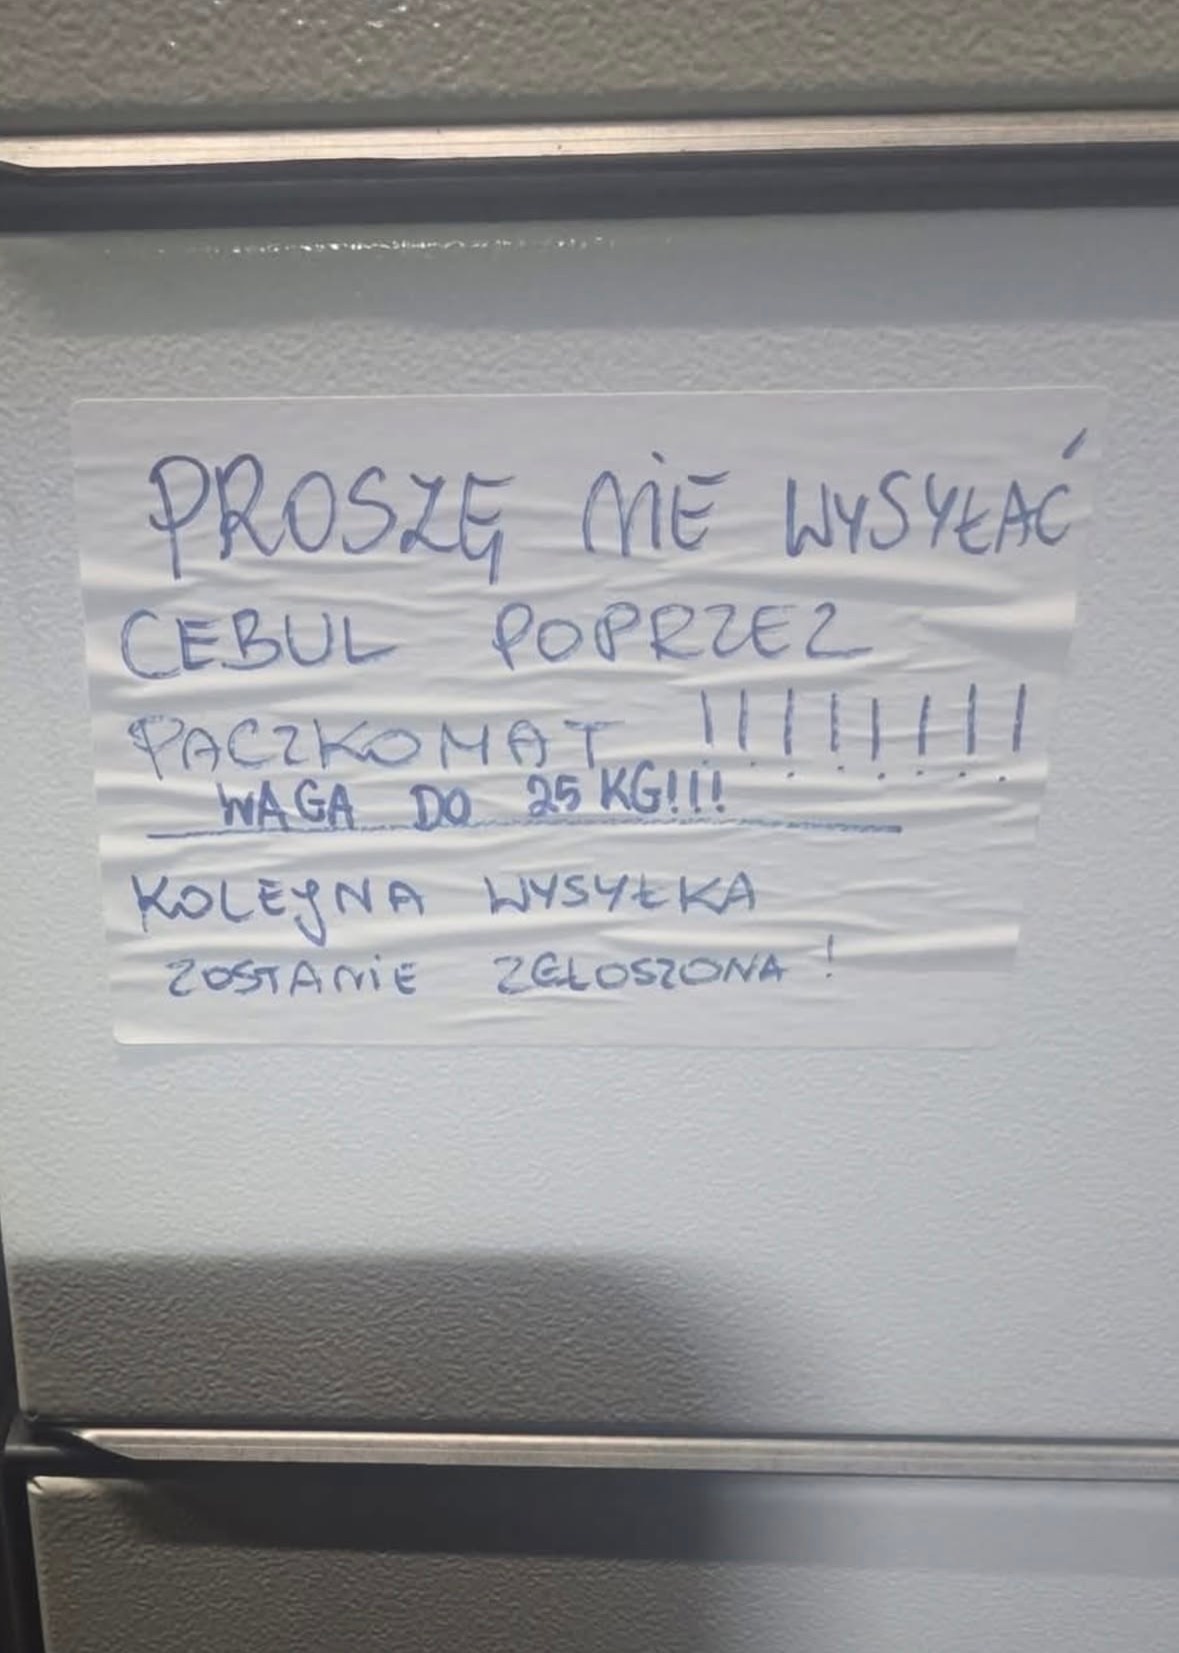 PROSZĘ NIE WYSYŁAĆ
CEBUL POPRZEZ
PACZKOMAT !!!!!!!!
WAGA DO 25 KG!!!
KOLEJNA WYSYŁKA
ZOSTANIE ZGŁOSZONA !